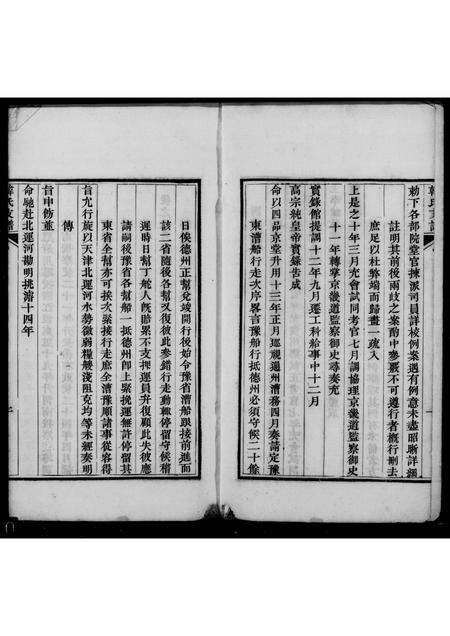 勅下各部院堂官揀派司員詳核例案遇有例意未盡昭晰詳細
註明其前後兩歧之案節中參覈不可遵行者概行刪去
庶足以杜弊端而歸畫一疏入
上是之十年三月充會試同考官七月調協理京畿道監察御史
十一年轉掌京畿道監察御史尋奏充
實錄館提調十二年九月遷工科給事中十二月
高宗純皇帝實錄告成
命以四品京堂升用十三年正月巡視通州漕務四月奏請定豫
東漕船行走次序畧言豫船行抵德州必須守候二十餘
日俟德州正幫兌竣開行後始令豫省漕船跟接前進而
該二省隨後各幫又復彼此參錯行走動輒停留守候稽
遲時日幫丁舵人旣賠累不支押運員弁復顧此失彼應
請嗣後豫省各幫船一抵德州卽上緊挽運無許停留其
東省全幫亦可挨次聚接行走庶全漕豫順諸事從容得
旨允行旋以天津北運河水勢微弱糧艘淺阻克均等未經奏明
傳
旨申飭並
命馳赴北運河勘明挑濬十四年
韓氏支譜